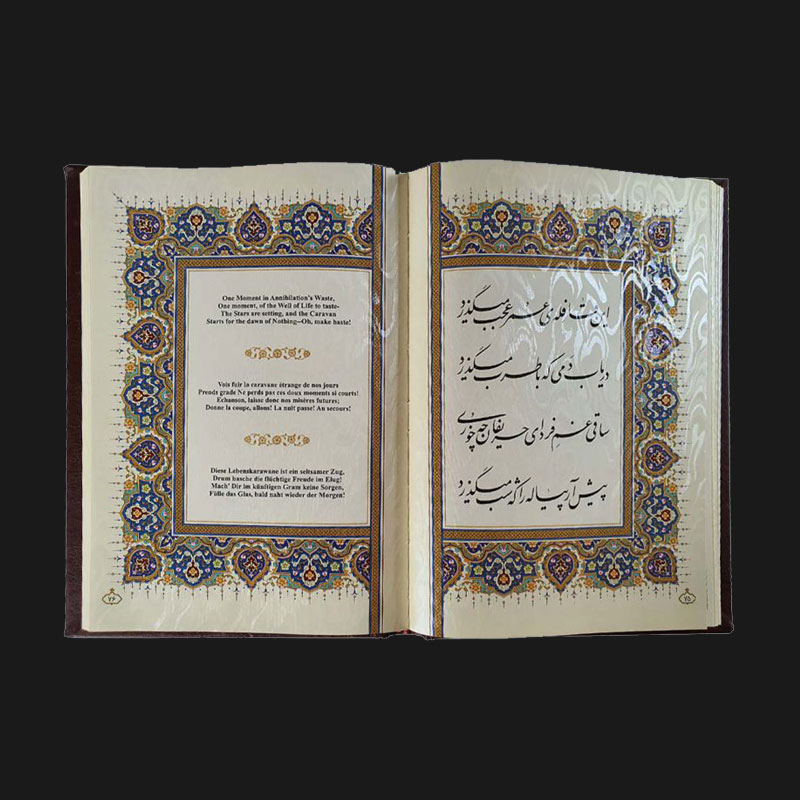 این قافله‌ی عمر عجب میگذرد
دریاب دمی که با طرب میگذرد
ساقی غم فردای حریفان چه خوری
پیش آر پیاله را که شب میگذرد
۷۵
One Moment in Annihilation's Waste,
One moment, of the Well of Life to taste-
The Stars are setting, and the Caravan
Starts for the dawn of Nothing--Oh, make haste!
Vois fuir la caravane étrange de nos jours
Prends grade Ne perds pas ces doux moments si courts!
Echanson, laisse donc nos misères futures;
Donne la coupe, allons! La nuit passe! Au secours!
Diese Lebenskarawane ist ein seltsamer Zug,
Drum hasche die flüchtige Freude im Elug!
Mach' Dir im künftigen Gram keine Sorgen,
Fülle das Glas, bald naht wieder der Morgen!
۷۶